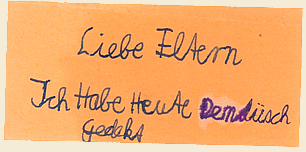 Liebe Eltern
Ich Habe Heute Demdüsch
gedekt